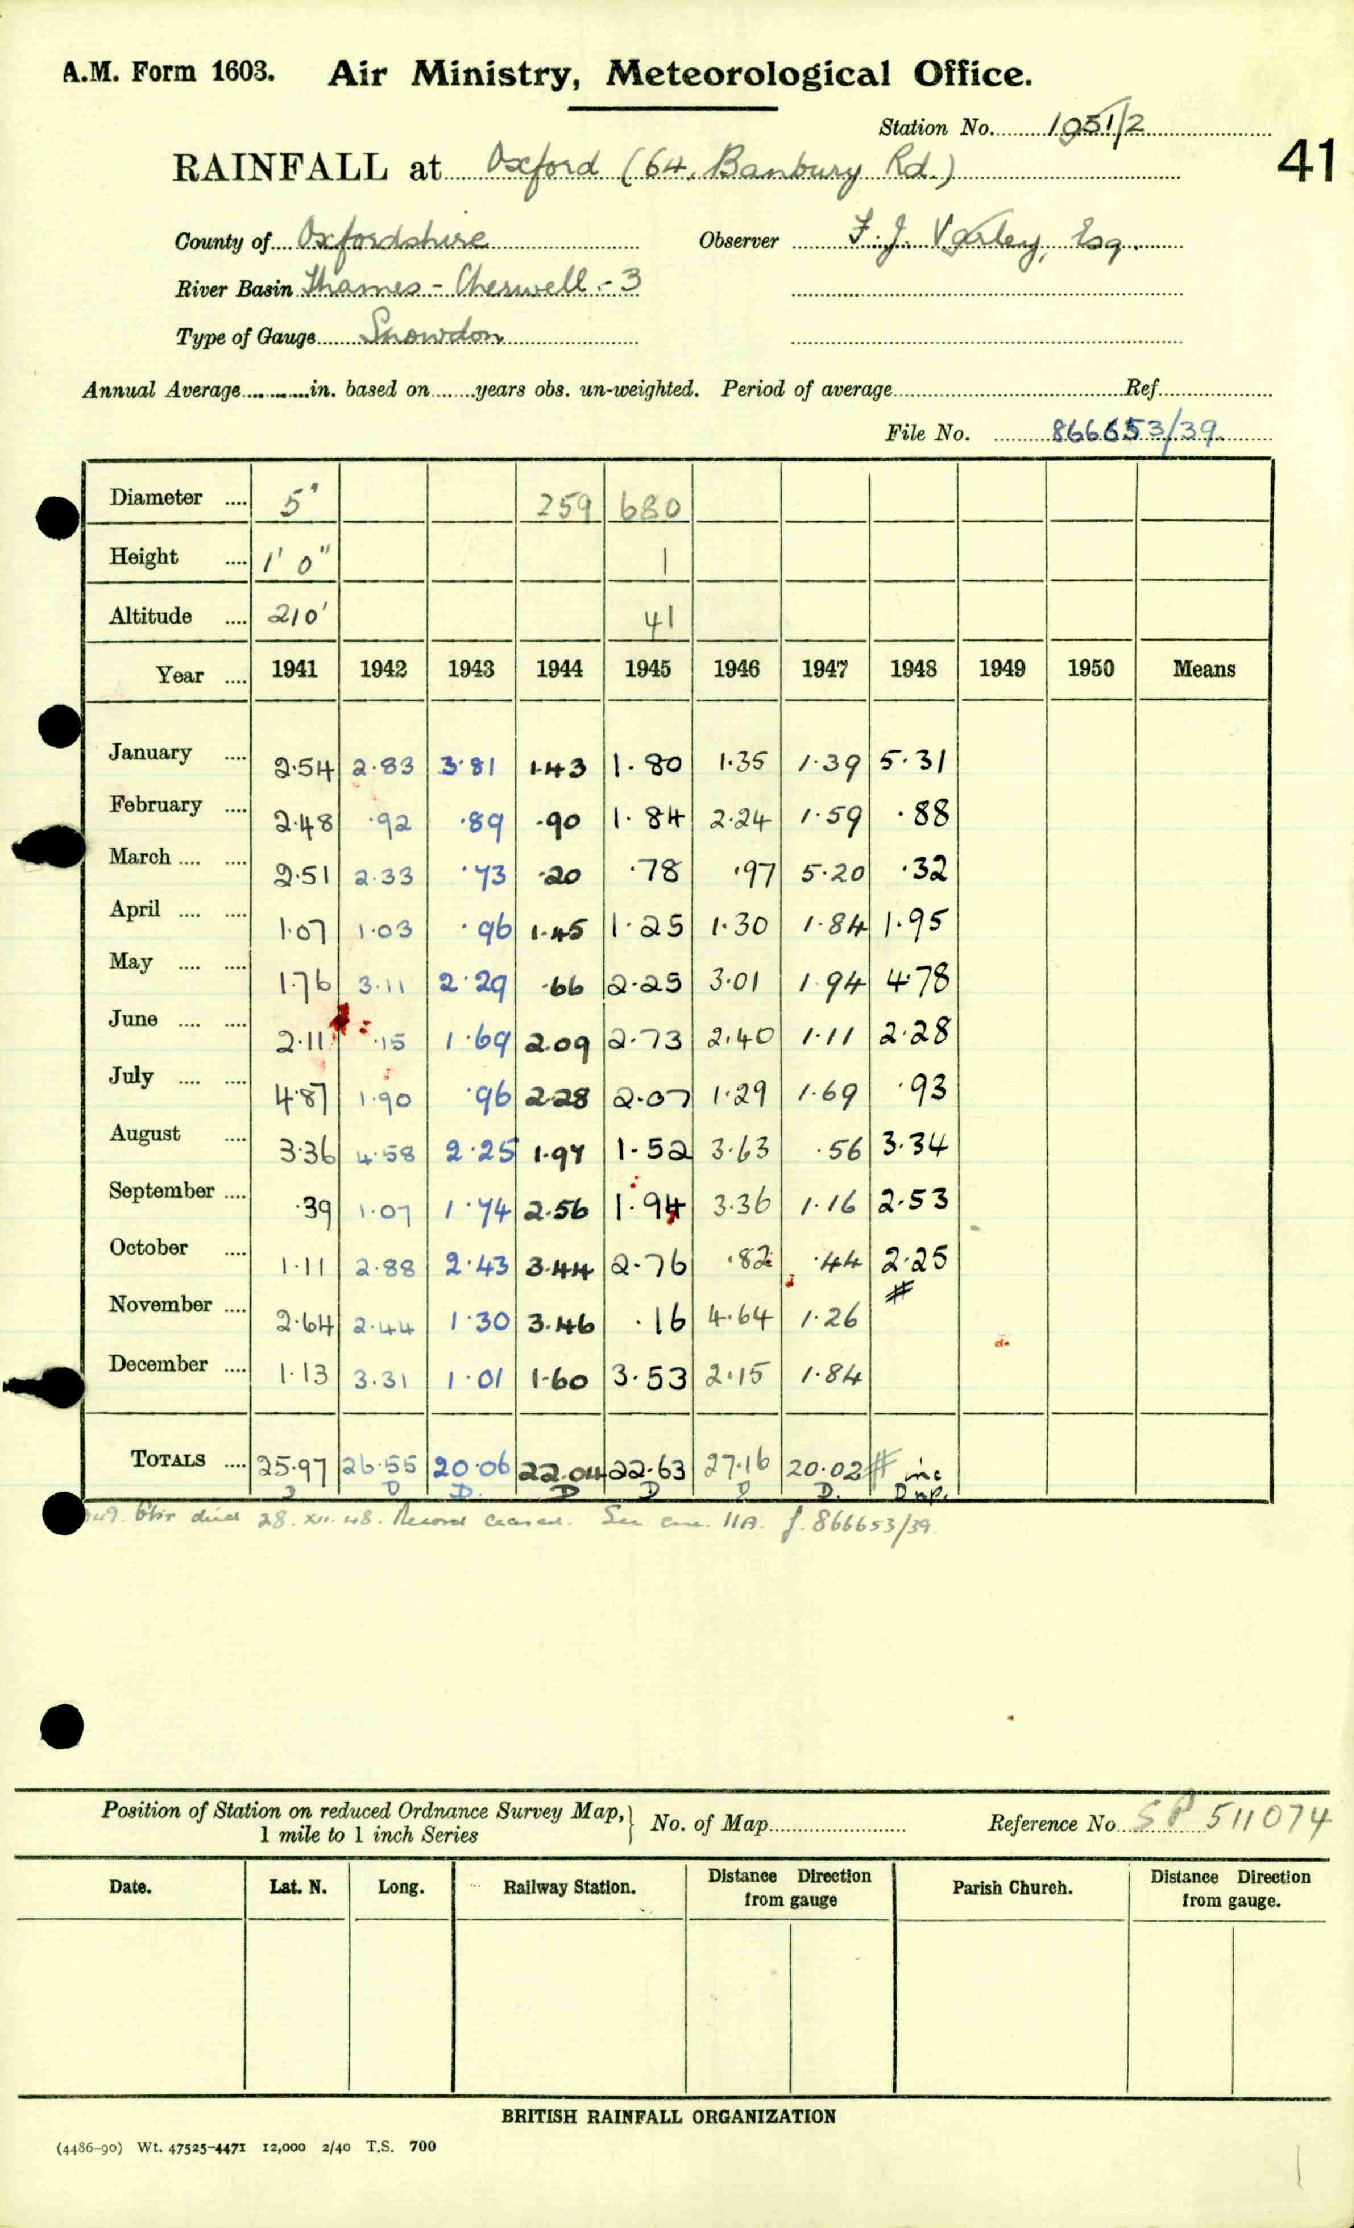 A.M. Form 1603. Air Ministry, Meteorological Office.
Station No. 1951/2
41
RAINFALL at Oxford (64, Banbury Rd.)
County of Oxfordshire Observer F. J. Varley, Esq.
River Basin Thames - Cherwell - 3
Type of Gauge Snowdon
Annual Average in. based on years obs. un-weighted. Period of average Ref.
File No. 866653/39.
Diameter .... 5" 259 680
Height .... 1' 0" 1
Altitude .... 210' 41
Year .... 1941 1942 1943 1944 1945 1946 1947 1948 1949 1950 Means
January .... 2.54 2.83 3.81 1.43 1.80 1.35 1.39 5.31
February .... 2.48 .92 .89 .90 1.84 2.24 1.59 .88
March .... .... 2.51 2.33 .73 .20 .78 .97 5.20 .32
April .... .... 1.07 1.03 .96 1.45 1.25 1.30 1.84 1.95
May .... .... 1.76 3.11 2.29 .66 2.25 3.01 1.94 4.78
June .... .... 2.11 .15 1.69 2.09 2.73 2.40 1.11 2.28
July .... .... 4.87 1.90 .96 2.28 2.07 1.29 1.69 .93
August .... 3.36 4.58 2.25 1.97 1.52 3.63 .56 3.34
September .... .39 1.07 1.74 2.56 1.94 3.36 1.16 2.53
October .... 1.11 2.88 2.43 3.44 2.76 .82 .44 2.25
November .... 2.64 2.44 1.30 3.46 .16 4.64 1.26 #
December .... 1.13 3.31 1.01 1.60 3.53 2.15 1.84
TOTALS .... 25.97 26.55 20.06 22.04 22.63 27.16 20.02 # inc
D D D. D D D D. D np.
Obsr died 28.XII.48. Record ceased. See enc. 11A. f. 866653/39.
Position of Station on reduced Ordnance Survey Map, } No. of Map Reference No. SP 511074
1 mile to 1 inch Series
Date. Lat. N. Long. Railway Station. Distance Direction from gauge Parish Church. Distance Direction from gauge.
BRITISH RAINFALL ORGANIZATION
(4486-90) Wt. 47525-4471 12,000 2/40 T.S. 700